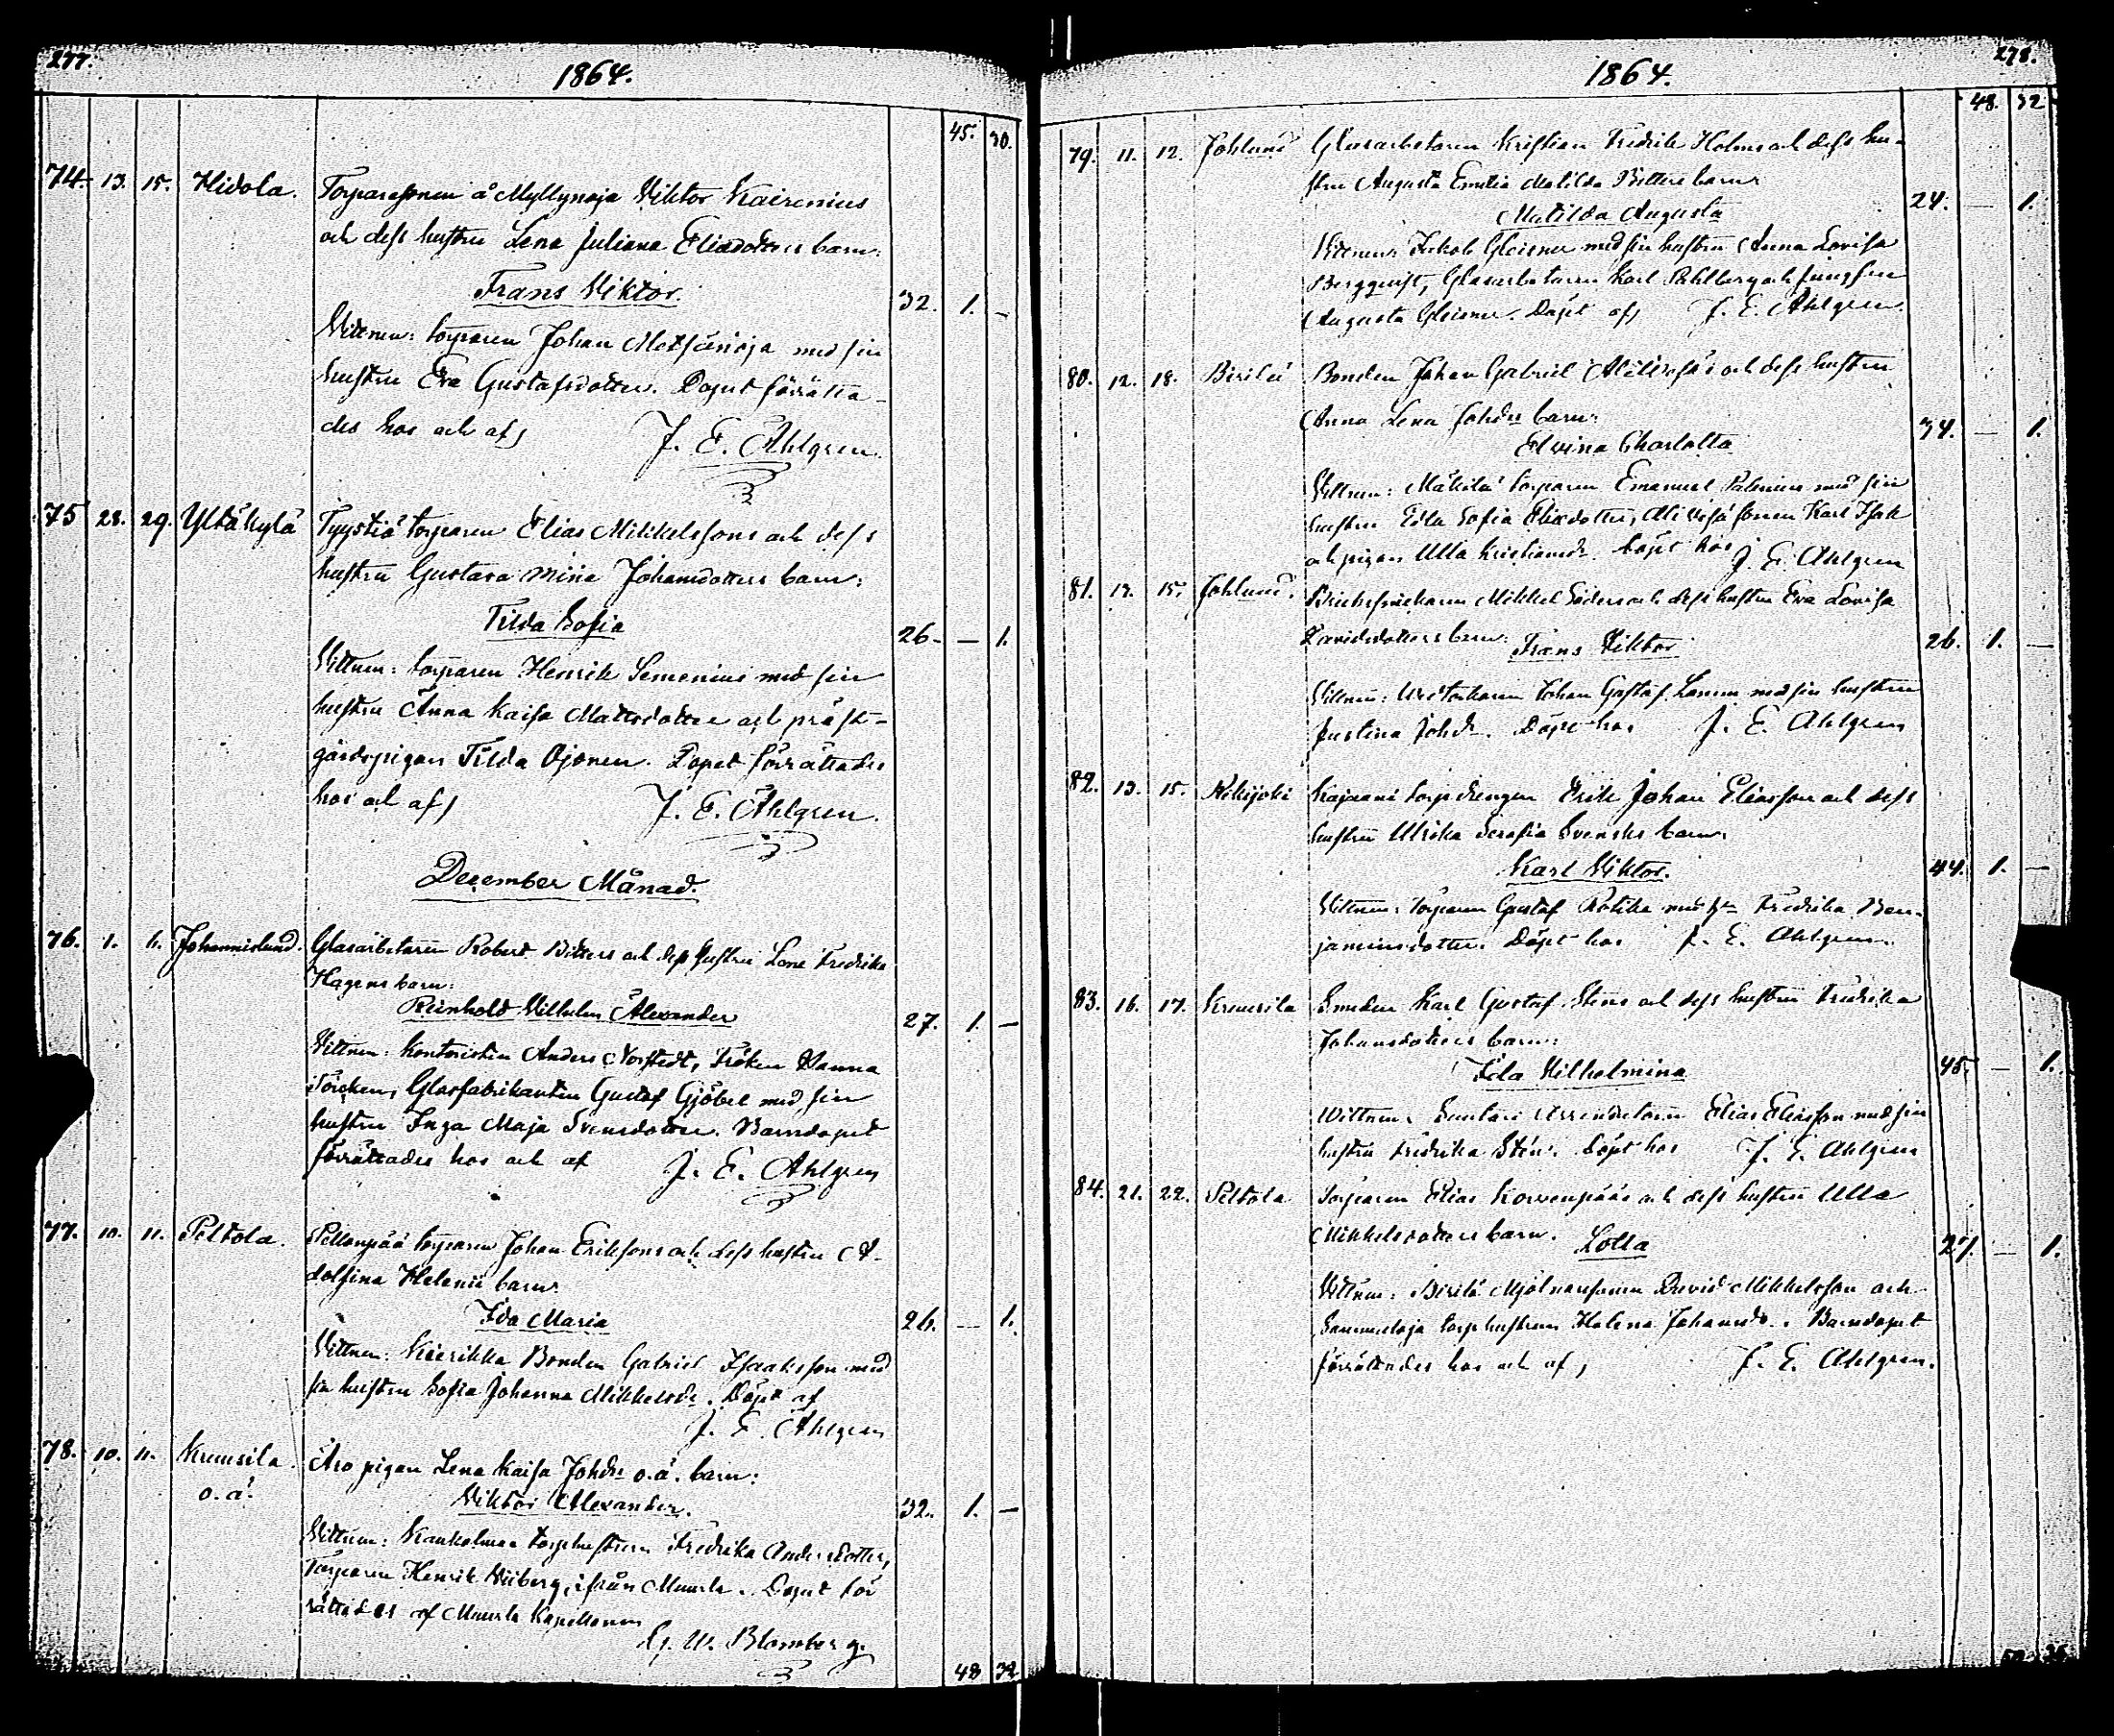 277.
1864.
45. 30.
74. 13. 15. Hidola. Torparesonen å Myllynoja Viktor Kairenius
och dess hustru Lena Juliana Eliædotters barn:
Frans Viktor. 32. 1. –
Vittnen: torparen Johan Metsänoja med sin
hustru Eva Gustafsdotter. Dopet förrätta-
des hos och af, J. E. Ahlgren.
75 28. 29. Yltäkylä Tyystiä torparen Elias Mikkelssons och dess
hustru Gustava Mina Johansdotters barn:
Tilda Sofia 26. – 1.
Vittnen: torparen Henrik Semenius med sin
hustru Anna Kaisa Mattsdotter och präst-
gårdspigan Tilda Ojonen. Dopet förrättades
hos och af, J. E. Ahlgren.
December Månad.
76. 1. 6. Johannislund. Glasarbetaren Robert Bitters och dess hustru Lena Fredrika
Hagens barn:
Reinhold Vilhelm Alexander 27. 1. –
Vittnen: Kontoristen Anders Norstedt, Fröken Nanna
Glasfabrikanten Gustaf Gjöbel med sin
hustru Inga Maja Svensdotter. Barndopet
förrättades hos och af J. E. Ahlgren
77. 10. 11. Peltola. Pellonpää torparen Johan Eriksons och dess hustru A-
dolfina Helenii barn:
Ida Maria 26. – 1.
Vittnen: Kierikka Bonden Gabriel Isaaksson med
sin hustru Sofia Johanna Mikkelsdr. Döpt af
J. E. Ahlgren
78. 10. 11. Kruusila. Aro pigan Lena Kaisa Johdrs o.ä. barn:
o.ä.
Viktor Alexander. 32. 1. –
Vittnen: Kaukolmaa torphustrun Fredrika Andersdotter,
Torparen Henrik Wiberg, ifrån Muurla. Dopet för
rättades af Muurla Kapellanen
G. W. Blomberg.
48 32
278.
1864.
48. 32
79. 11. 12. Johlund Glasarbetaren Kristian Fredrik Holms och dess hu-
stru Augusta Emilia Matilda Bitters barn:
Matilda Augusta 24. – 1.
Vittnen: Jakob Gleisner med sin hustru Anna Lovisa
Bergquist, Glasarbetaren Karl Pahlberg och Jungfrun
Augusta Gleisner. Döpt af, J. E. Ahlgren.
80. 12. 18. Birilä Bonden Johan Gabriel och dess hustru
Anna Lena Johdrs barn:
Elvina Charlotta 34. – 1.
Vittnen: Mäkilä torparen Emanuel Palenius med sin
hustru Edla Sofia Eliædotter, sonen Karl Isak
och pigan Ulla Kristiansdr. Döpt hos J. E. Ahlgren
81. 13. 15. Johlund. Mikkel Söders och dess hustru Eva Lovisa
Davidsdotters barn: Frans Viktor 26. 1. –
Vittnen: Johan Gustaf med sin hustru
Justina Johdr. Döpt hos J. E. Ahlgren
82. 13. 15. Kokijoki Kajaani torpdrengen Erik Johan Eliasson och dess
hustru Ulrika Serafia Svensks barn:
Karl Viktor. 44. 1. –
Vittnen: torparen Gustaf med hu Fredrika Ben-
jaminsdotter. Döpt hos J. E. Ahlgren.
83. 16. 17. Kruusila Smeden Karl Gustaf Stens och dess hustru Fredrika
Johansdotters barn:
Ida Vilhelmina 45. – 1.
Vittnen: Arrendatorn Elias Eliasson med sin
hustru Fredrika Sten. Döpt hos J. E. Ahlgren
84. 21. 22. Peltola Torparen Elias Korvenpääs och dess hustru Ulla
Mikkelsdotters barn. Lotta 27. – 1.
Vittnen: Birilä Mjölnaresonen David Mikkelsson och
Sammaloja torphustrun Helena Johansdr. Barndopet
förrättades hos och af, J. E. Ahlgren.